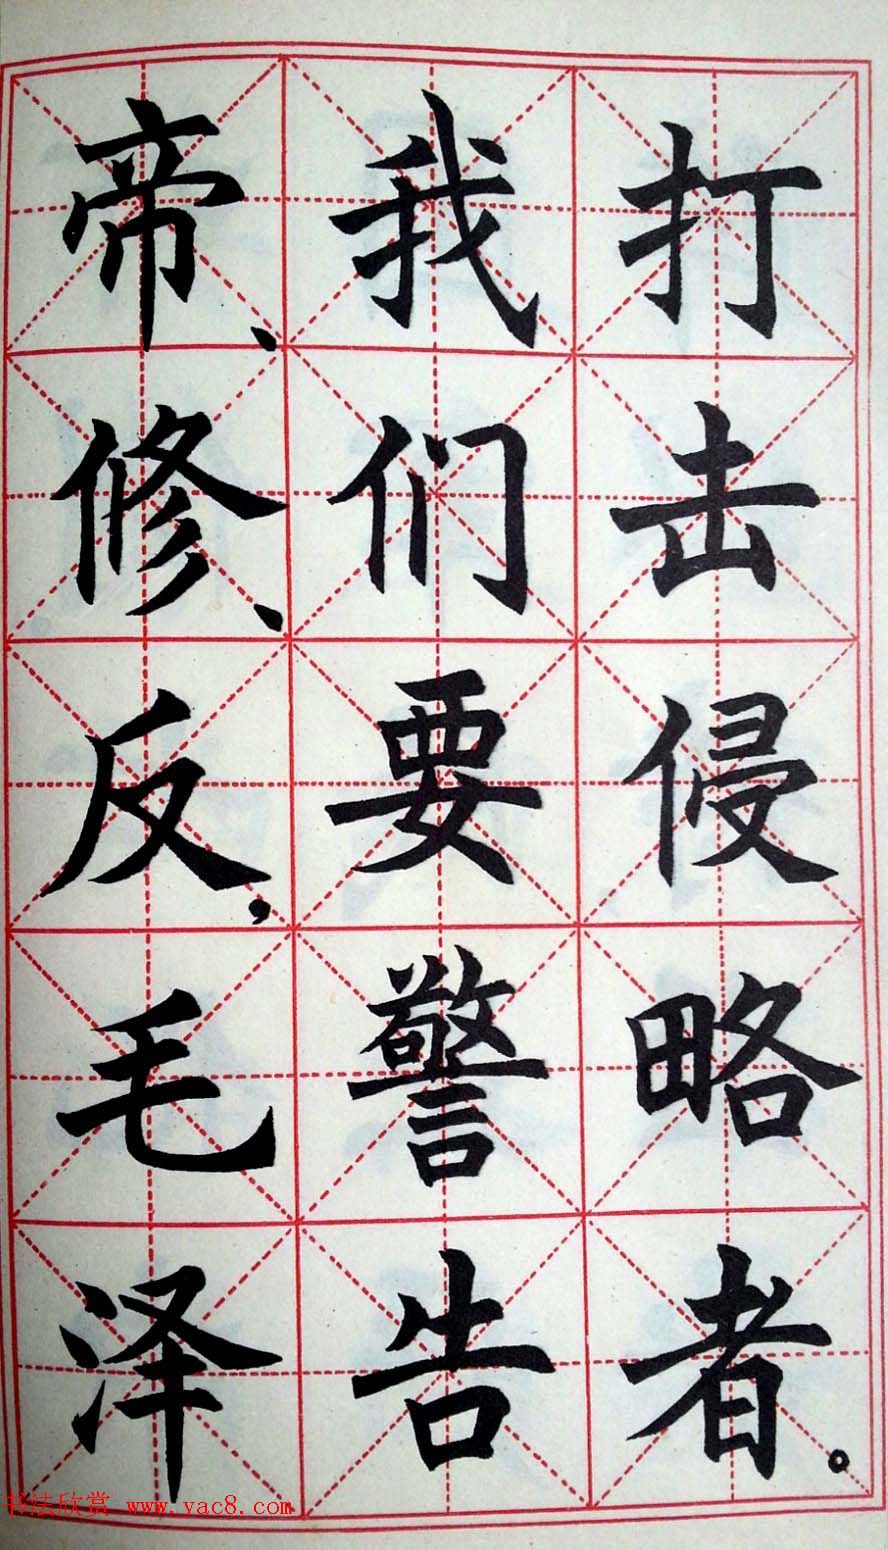 打击侵略者。
我们要警告
帝、修、反，毛泽
书法欣赏 www.yac8.com